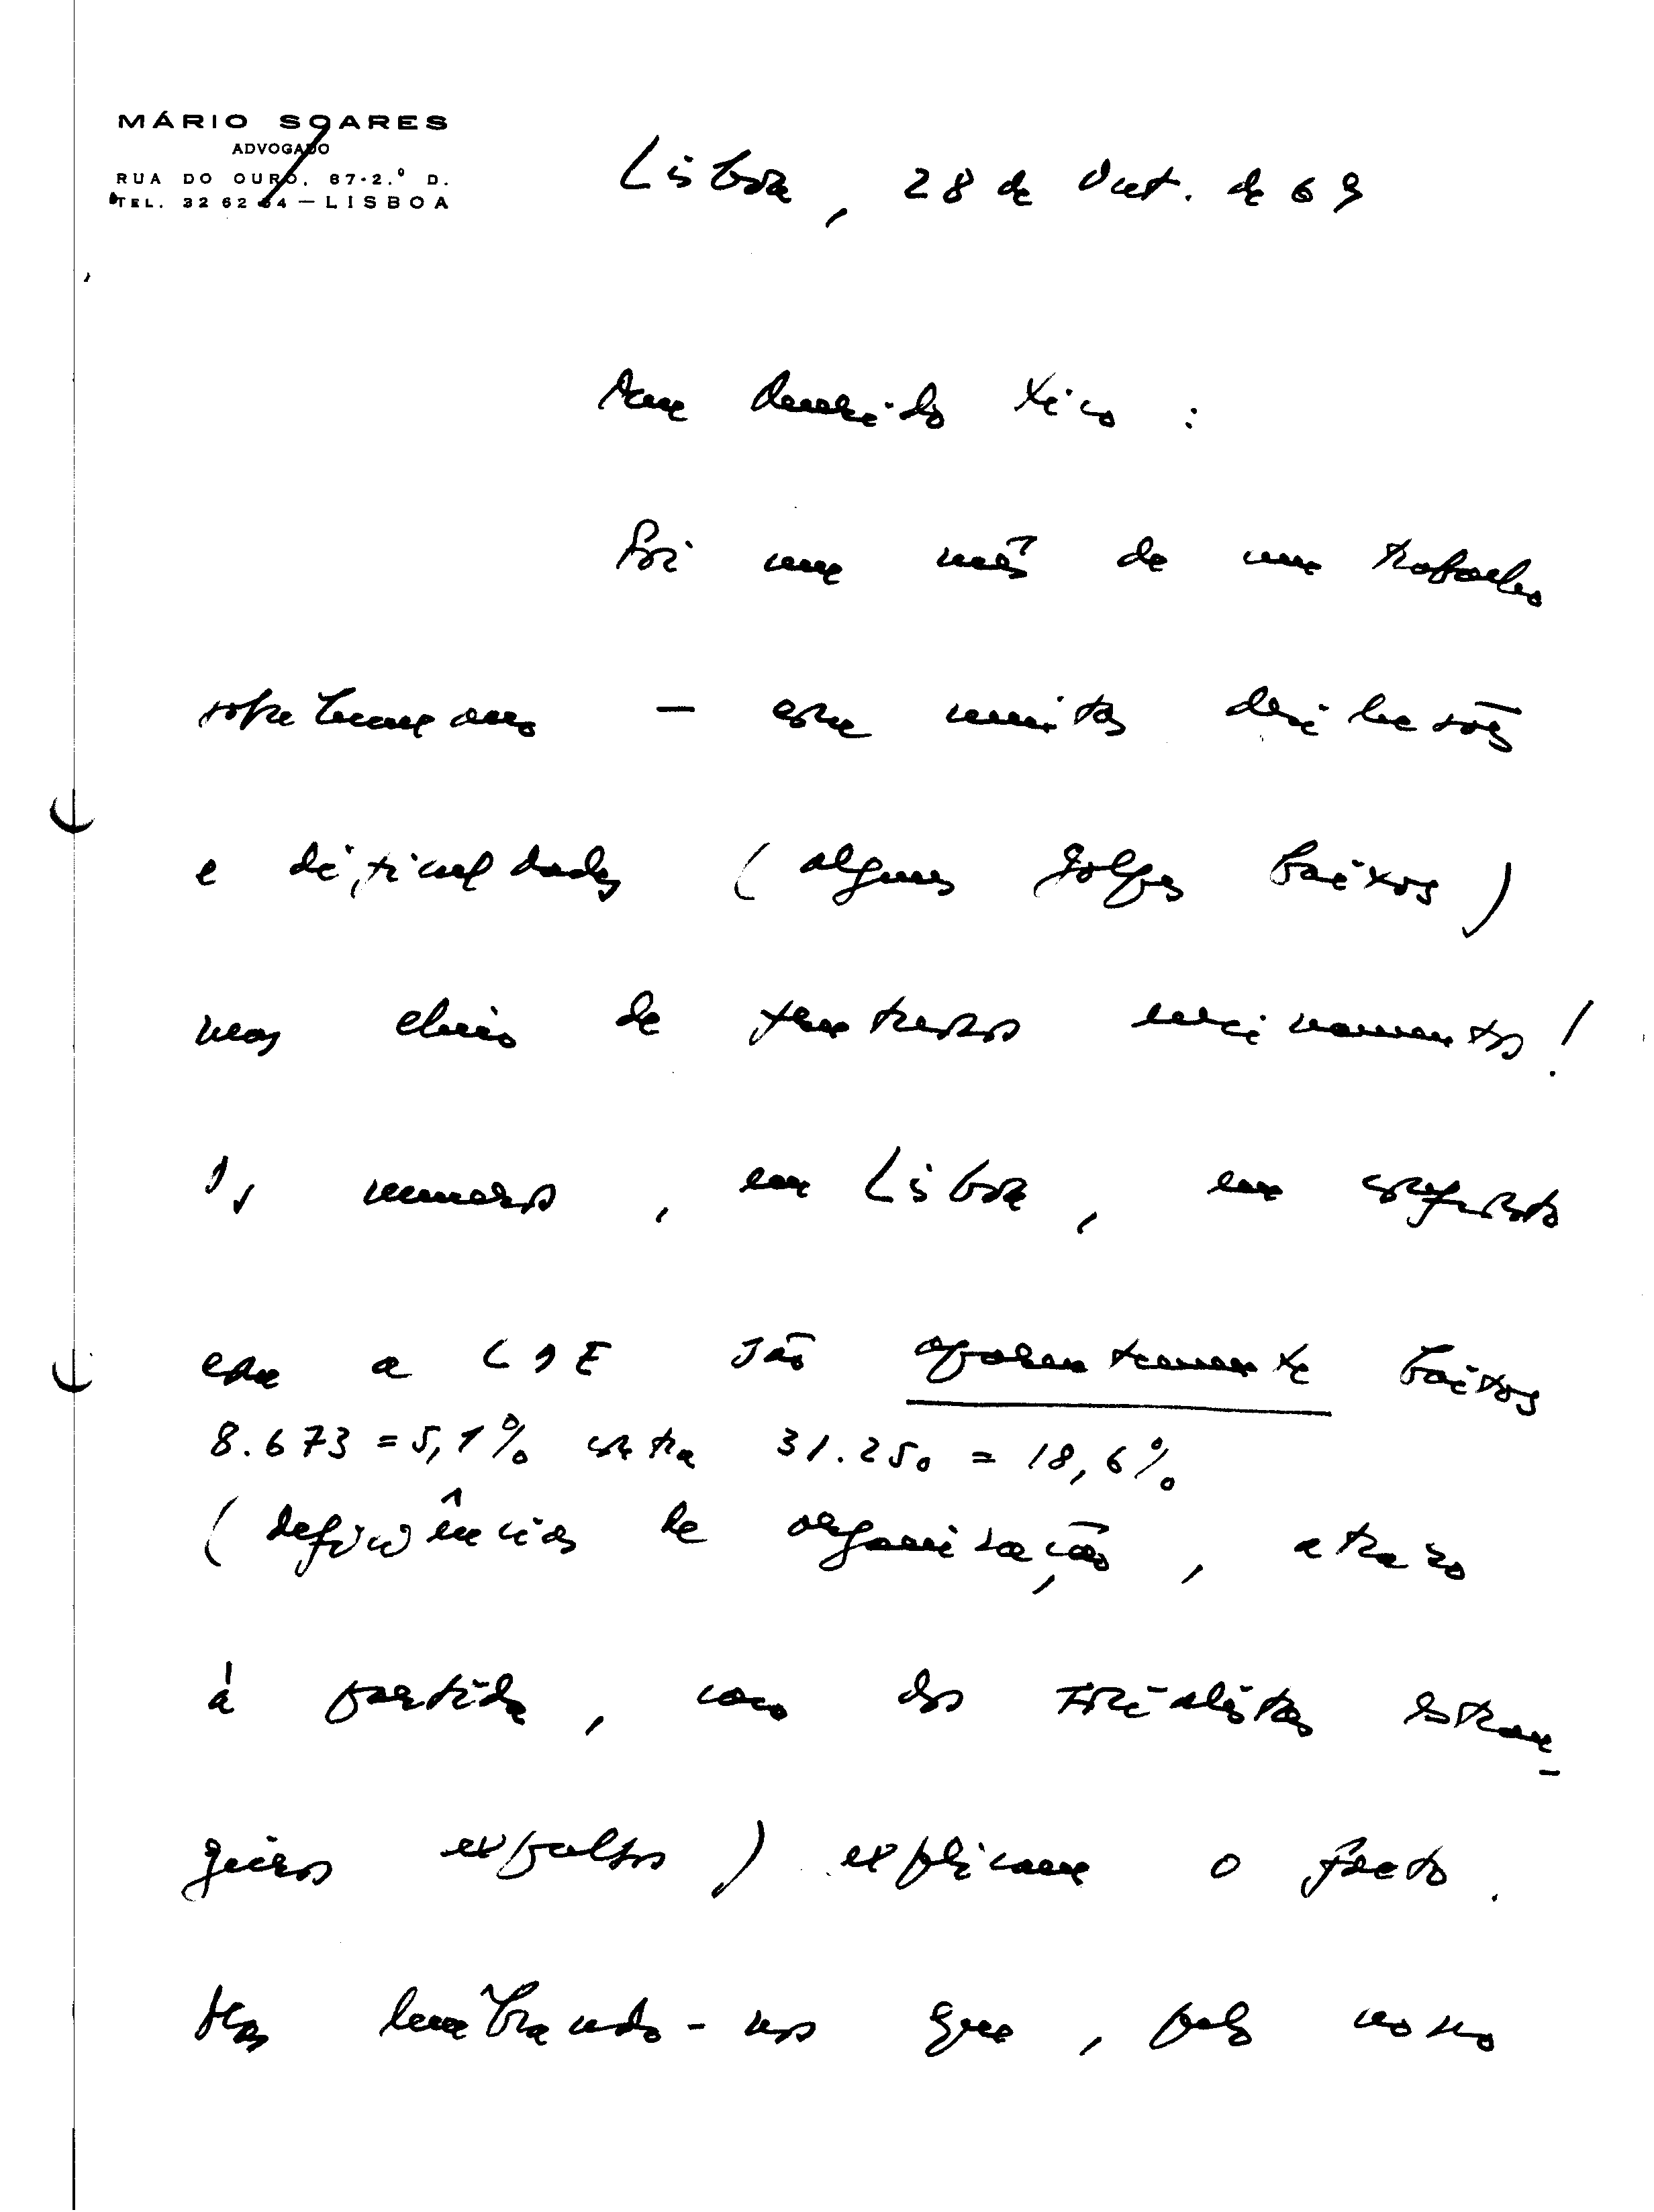 MÁRIO SOARES
ADVOGADO
RUA DO OURO, 87-2.º D.
TEL. 32 62 64 — LISBOA
Lisboa, 28 de Out. de 69
Meu querido Xico:
Foi um mês de um trabalho
sobrehumano — com muitas desilusões
e dificuldades (alguns golpes baixos)
mas cheio de frutuosos ensinamentos!
Os números, em Lisboa, em confronto
com a CDE são aparentemente baixos
8.673 = 5,1% contra 31.250 = 18,6%
(deficiências de organização, atrazo
à partida, caso dos socialistas estran-
geiros expulsos) explicam o facto.
Mas lembrando-nos que, pelo nosso